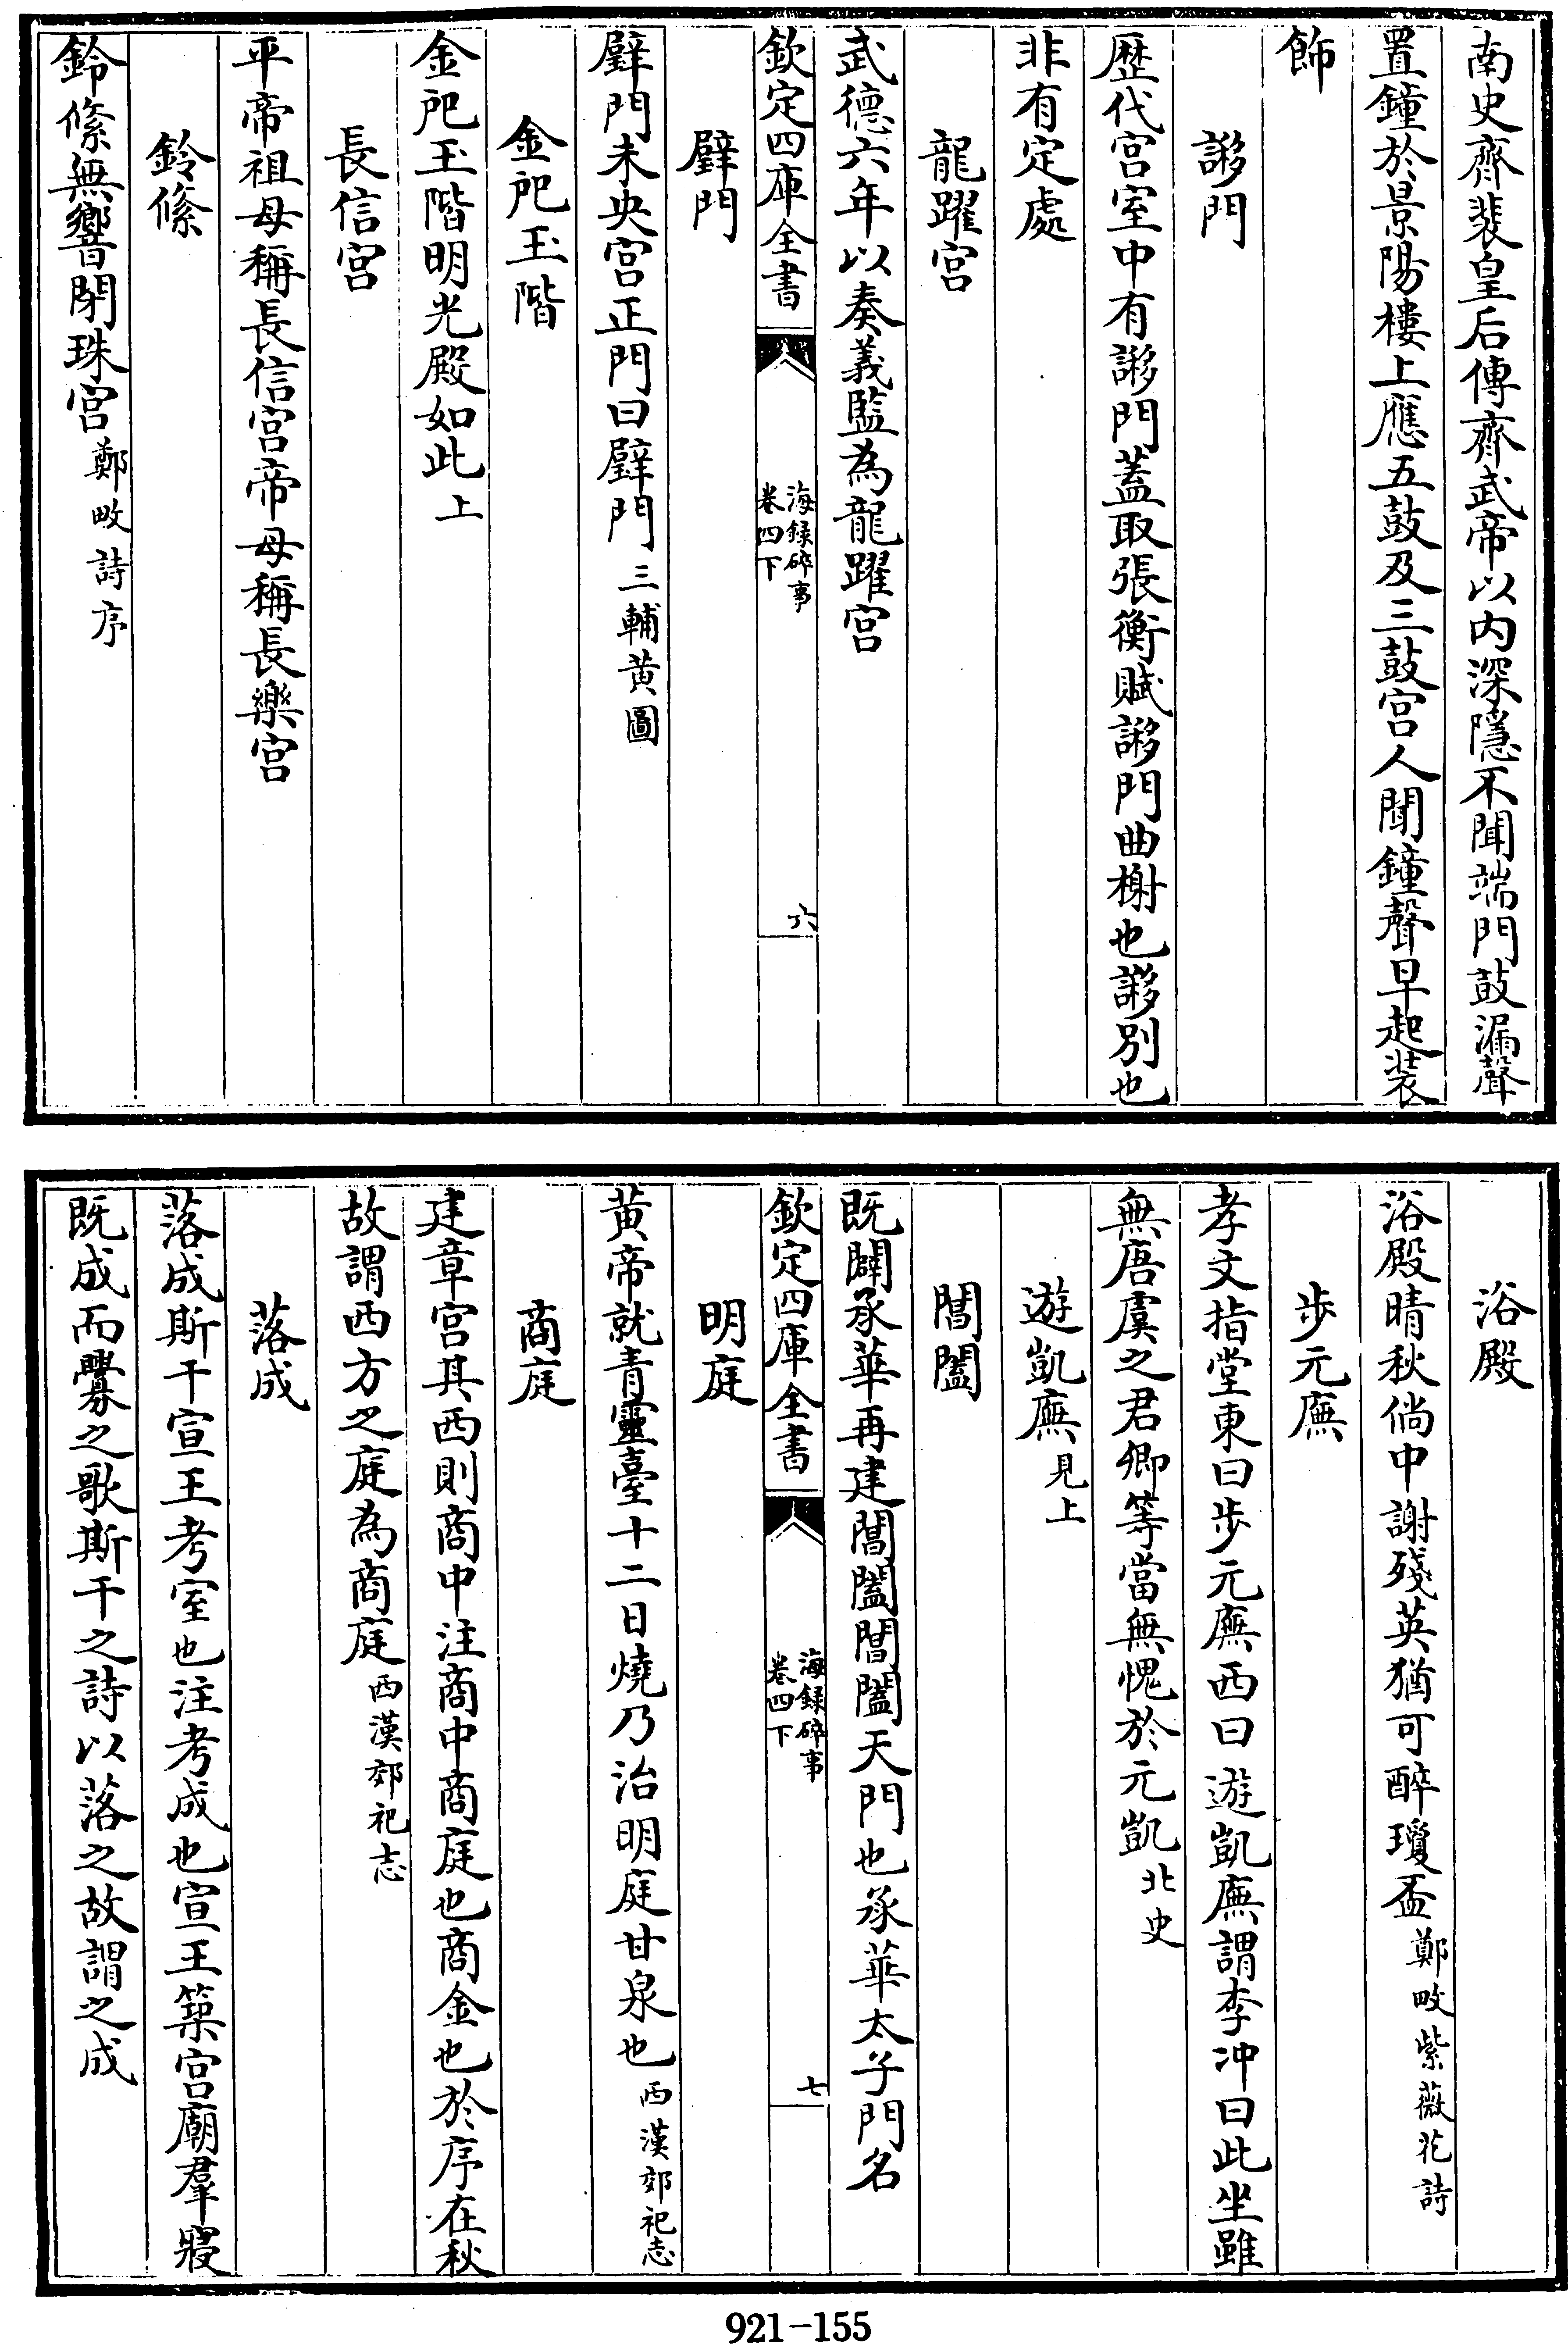 南史齊裴皇后傳齊武帝以內深隱不聞端門鼓漏聲
置鐘於景陽樓上應五鼓及三鼓宮人聞鐘聲早起装
飾
謻門
歷代宮室中有謻門蓋取張衡賦謻門曲榭也謻別也
非有定處
龍躍宮
武德六年以奏義監為龍躍宮
欽定四庫全書
海録碎事
卷四下
六
璧門
璧門未央宮正門曰璧門三輔黄圖
金戺玉階
金戺玉階明光殿如此上
長信宮
平帝祖母稱長信宮帝母稱長樂宮
鈴絛
鈴絛無響閉珠宮鄭畋詩序
浴殿
浴殿晴秋倘中謝殘英猶可醉瓊盃鄭畋紫薇花詩
步元廡
孝文指堂東曰步元廡西曰遊凱廡謂李冲曰此坐雖
無唐虞之君卿等當無愧於元凱北史
遊凱廡見上
閶闔
既闢承華再建閶闔閶闔天門也承華太子門名
欽定四庫全書
海録碎事
卷四下
七
明庭
黄帝就青靈臺十二日燒乃治明庭甘泉也西漢郊祀志
商庭
建章宮其西則商中注商中商庭也商金也於序在秋
故謂西方之庭為商庭西漢郊祀志
落成
落成斯干宣王考室也注考成也宣王築宮廟羣寢
既成而釁之歌斯干之詩以落之故謂之成
921-155